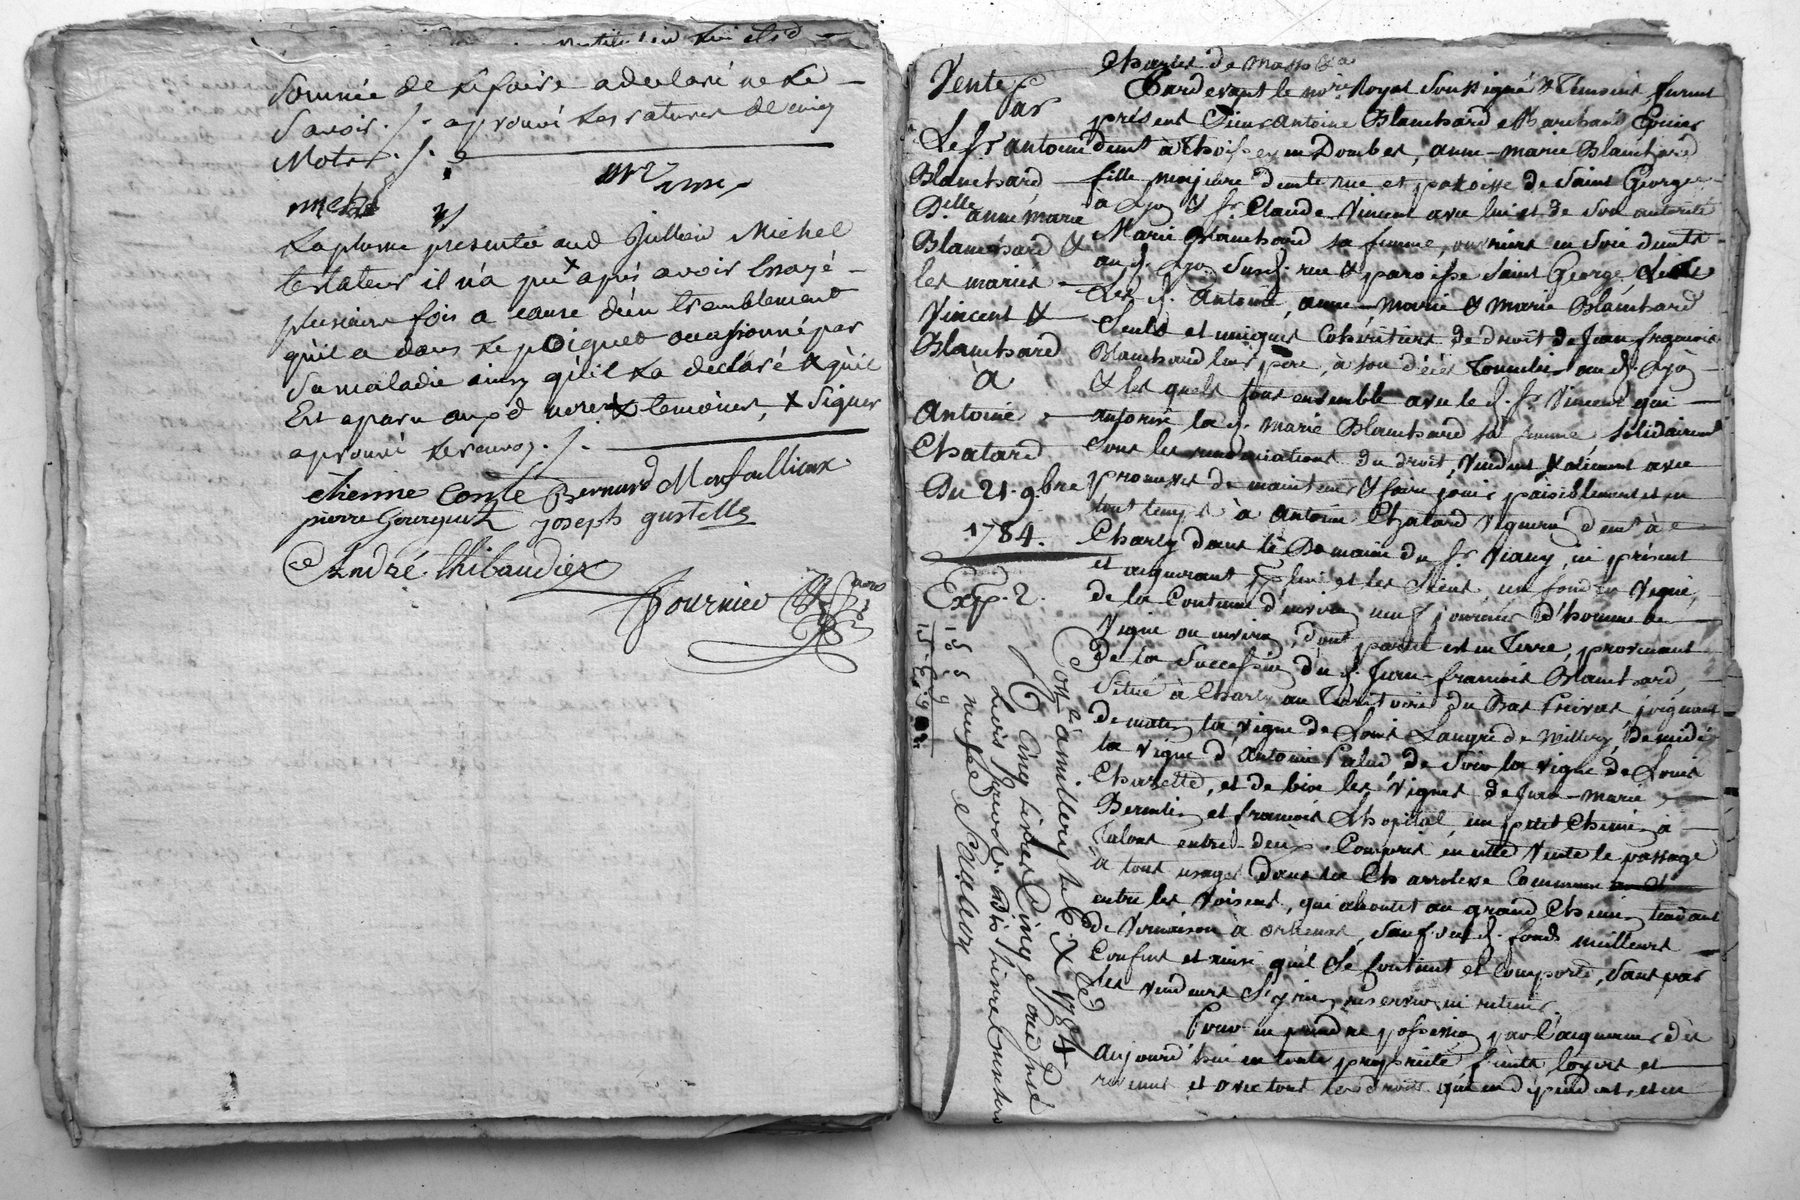 Sommée de le faire a declaré ne le
Savoir ./. aprouvé les ratures de cinq
Mots ./.
La plume presentée aud Jullien Michel
testateur il n'a pu apres avoir Essayé
plusieurs fois a cause d'un tremblement
qu'il a dans le poignet occasionné par
sa maladie ainsy qu'il l'a declaré & qu'il
Est aparu auxd nores & temoins, & Signer
aprouvé le renvoy ./.
etienne Comte Bernard Monfoullioux
pierre Gourguet joseph gustelle
André thibaudier
Fournier
Vente
Par
Le sr antoine
Blanchard
Dlle anne marie
Blanchard &
les mariés
Vincent &
Blanchard
à
Antoine
Chatard
Du 21. 9bre
1784.
Exp. 2.
Contlé à millery le 6 Xbre 1784
R cinq livres cinq sous
Pardevant le nore Royal soussigné & Temoins, furent
présent Sieur Antoine Blanchard Marchand
demt à Thoissey en Dombes, anne-marie Blanchard
fille majeure demte rue et paroisse de Saint George
à Lyon & sr. Claude Vincent avec lui et de son autorité
Marie Blanchard sa femme, ouvriers en soie demts
aud. Lyon susd. rue & paroisse Saint George
Les d. Antoine, anne-marie & marie Blanchard
Seuls et uniques Cohéritiers de droit de Jean françois
Blanchard leur père, à son décès Tonnelier aud. Lyon
& les quels tous ensemble avec le d. sr Vincent qui
autorise lad. marie Blanchard sa femme solidairement
sous les renonciations du droit, vendent & aliènent avec
promesse de maintenir & faire jouir paisiblement et en
tout temps à antoine Chatard Vigneron demt à
Charly dans le Domaine du sr. Viany, ici présent
et acquerant pr lui et les siens, un fond en Vigne,
de la Contenue d'environ neuf journées d'homme de
Vigne ou environ, dont partie est en Terre, provenant
de la Succession du d. Jean-françois Blanchard,
situé à Charly au Territoire du Bas Privas joignant
de matin la vigne de Louis Langré de millery, de midi
la vigne d'Antoine Palud de soir la vigne de Louis
Charette, et de bise les Vignes de Jean-marie
et françois Lhopital, un petit Chemin à
Talons entre-deux. Compris en cette Vente le passage
à tous usages dans la Charriere Commune
entre les voisins, qui aboutit au grand Chemin tendant
de Vernaison à orlienas, sauf dud. fonds meilleurs
Confins et ainsi qu'il se contient et comporte, sans par
les vendeurs s'y rien reserver ni retenir.
Pour en prendre possession par l'acquereur dès
aujourd'hui en toute propriété, fruits loyers et
revenus et avec tous les droits qui en dépendent, et en